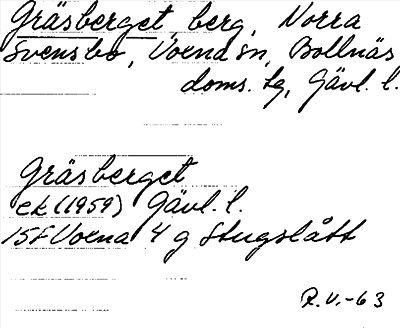 Gräsberget, berg, Norra
Svensbo, Voxna sn, Bollnäs
doms. tg, Gävl. l.
Gräsberget
ek (1959) Gävl. l.
15F Voxna 4 g Stugslått
R.V.-63